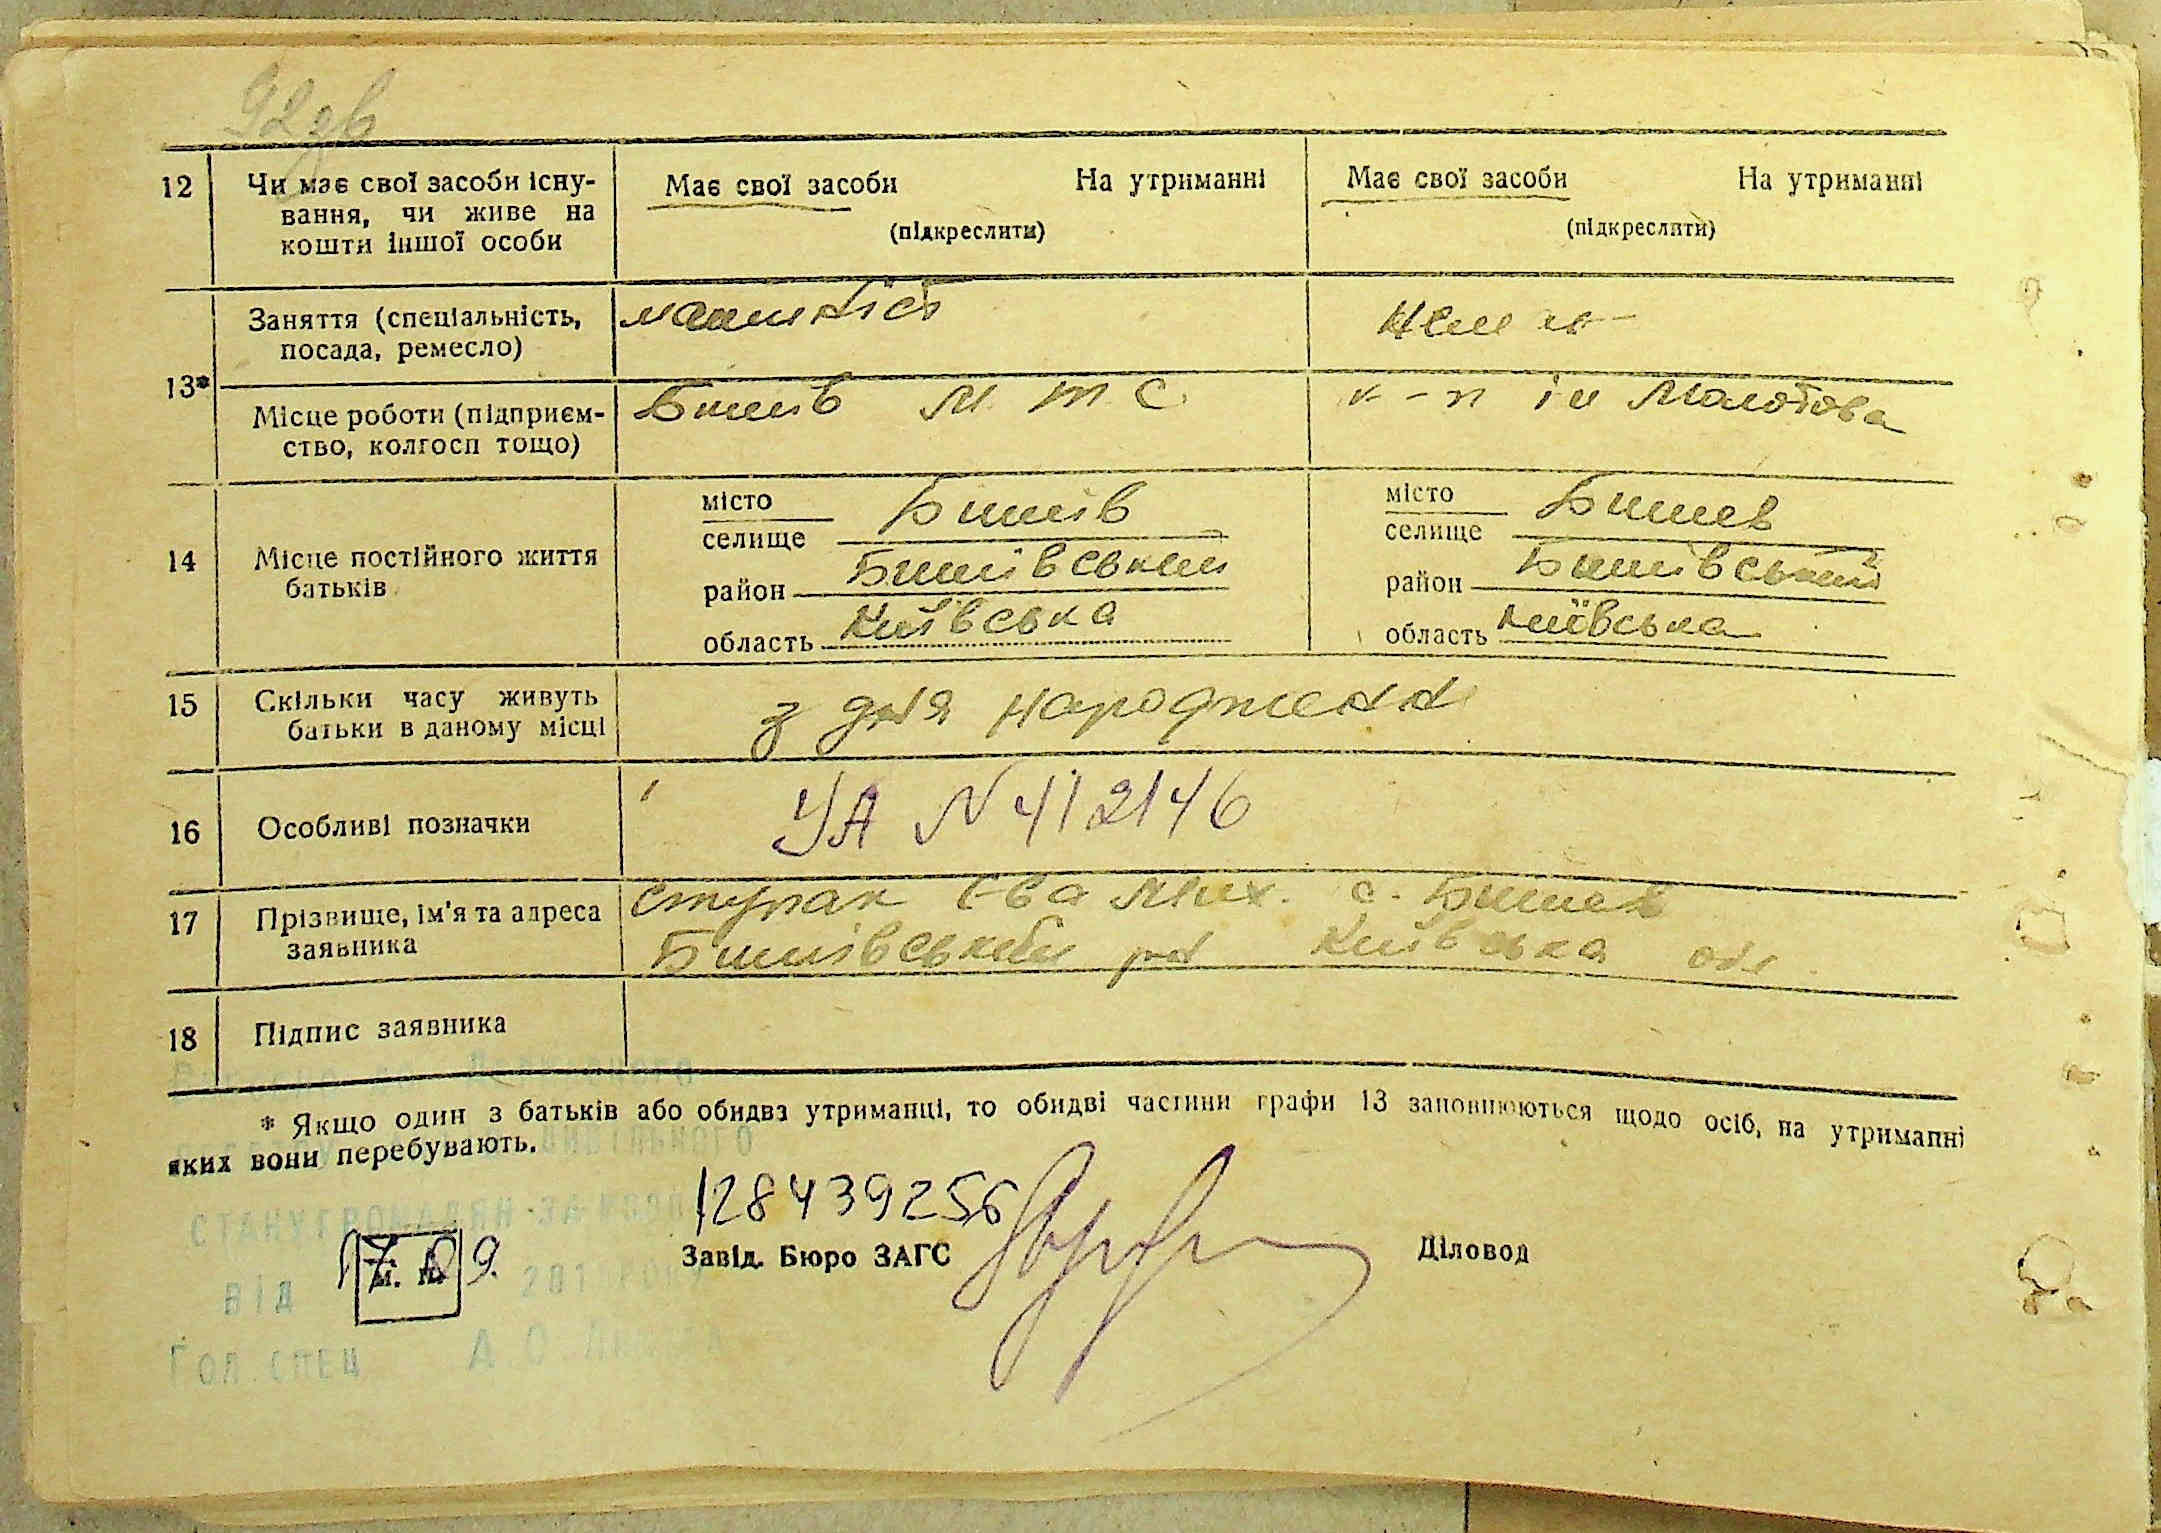 92зв
12 Чи має свої засоби існу-
вання, чи живе на
кошти іншої особи
Має свої засоби На утриманні
(підкреслити)
Має свої засоби На утриманні
(підкреслити)
13*
Заняття (спеціальність,
посада, ремесло)
машиніст
Місце роботи (підприєм-
ство, колгосп тощо)
Бишів М. Т. С.
к-п ім Молотова
14 Місце постійного життя
батьків
місто
селище Бишів
район Бишівський
область Київська
місто
селище Бишев
район Бишівський
область Київська
15 Скільки часу живуть
батьки в даному місці
з дня народженн
16 Особливі позначки
УА N 412146
17 Прізвище, ім'я та адреса
заявника
Ступак Єва Мих. с. Бишев
Бишівський рн Київська обл
18 Підпис заявника
* Якщо один з батьків або обидва утриманці, то обидві частини графи 13 заповнюються щодо осіб, на утриманні
яких вони перебувають.
128439256
Завід. Бюро ЗАГС
Діловод
М. П.
СТАНУ ГРОМАДЯН ЗА
ВІД
ГОЛ.СПЕЦ